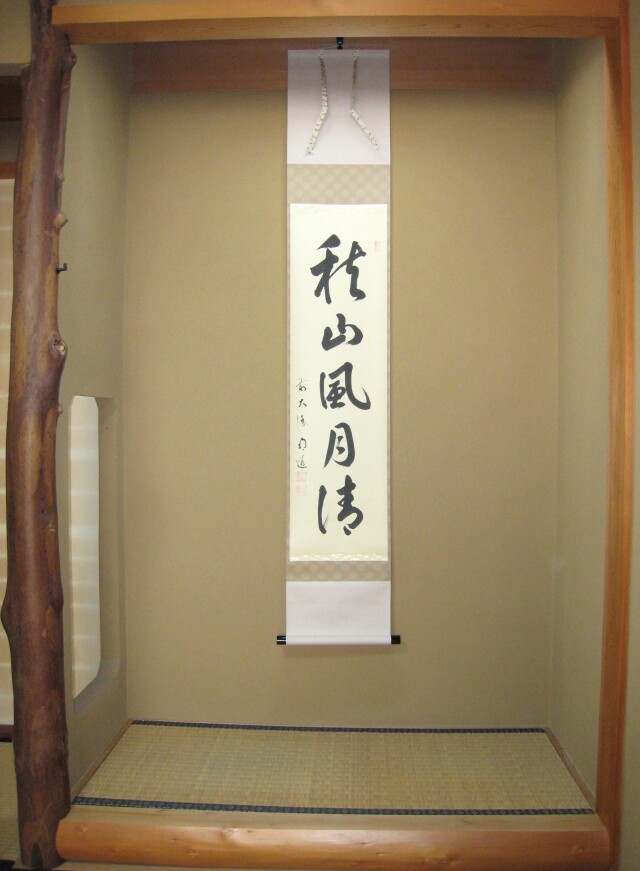 秋山風月清
前大徳